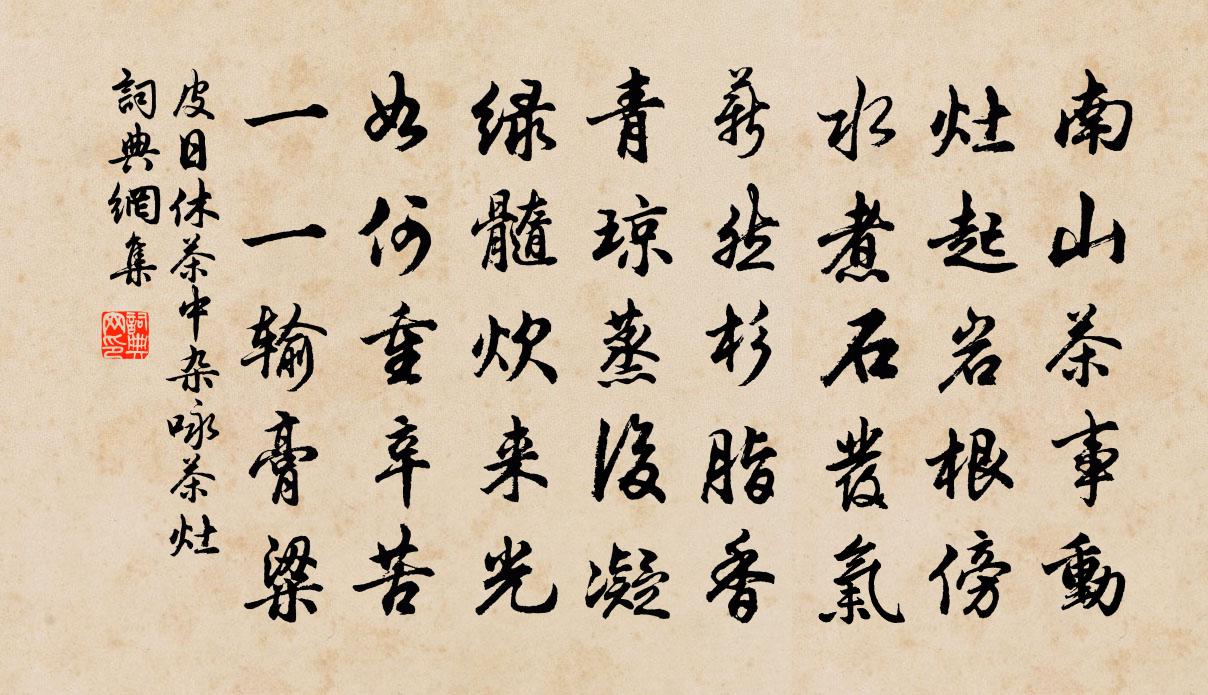 南山茶事動
灶起岩根傍
水煮石發氣
薪然杉脂香
青琼蒸後凝
绿髓炊来光
如何重辛苦
一一输膏粱
皮日休茶中杂咏茶灶
詞典網集
詞典网印